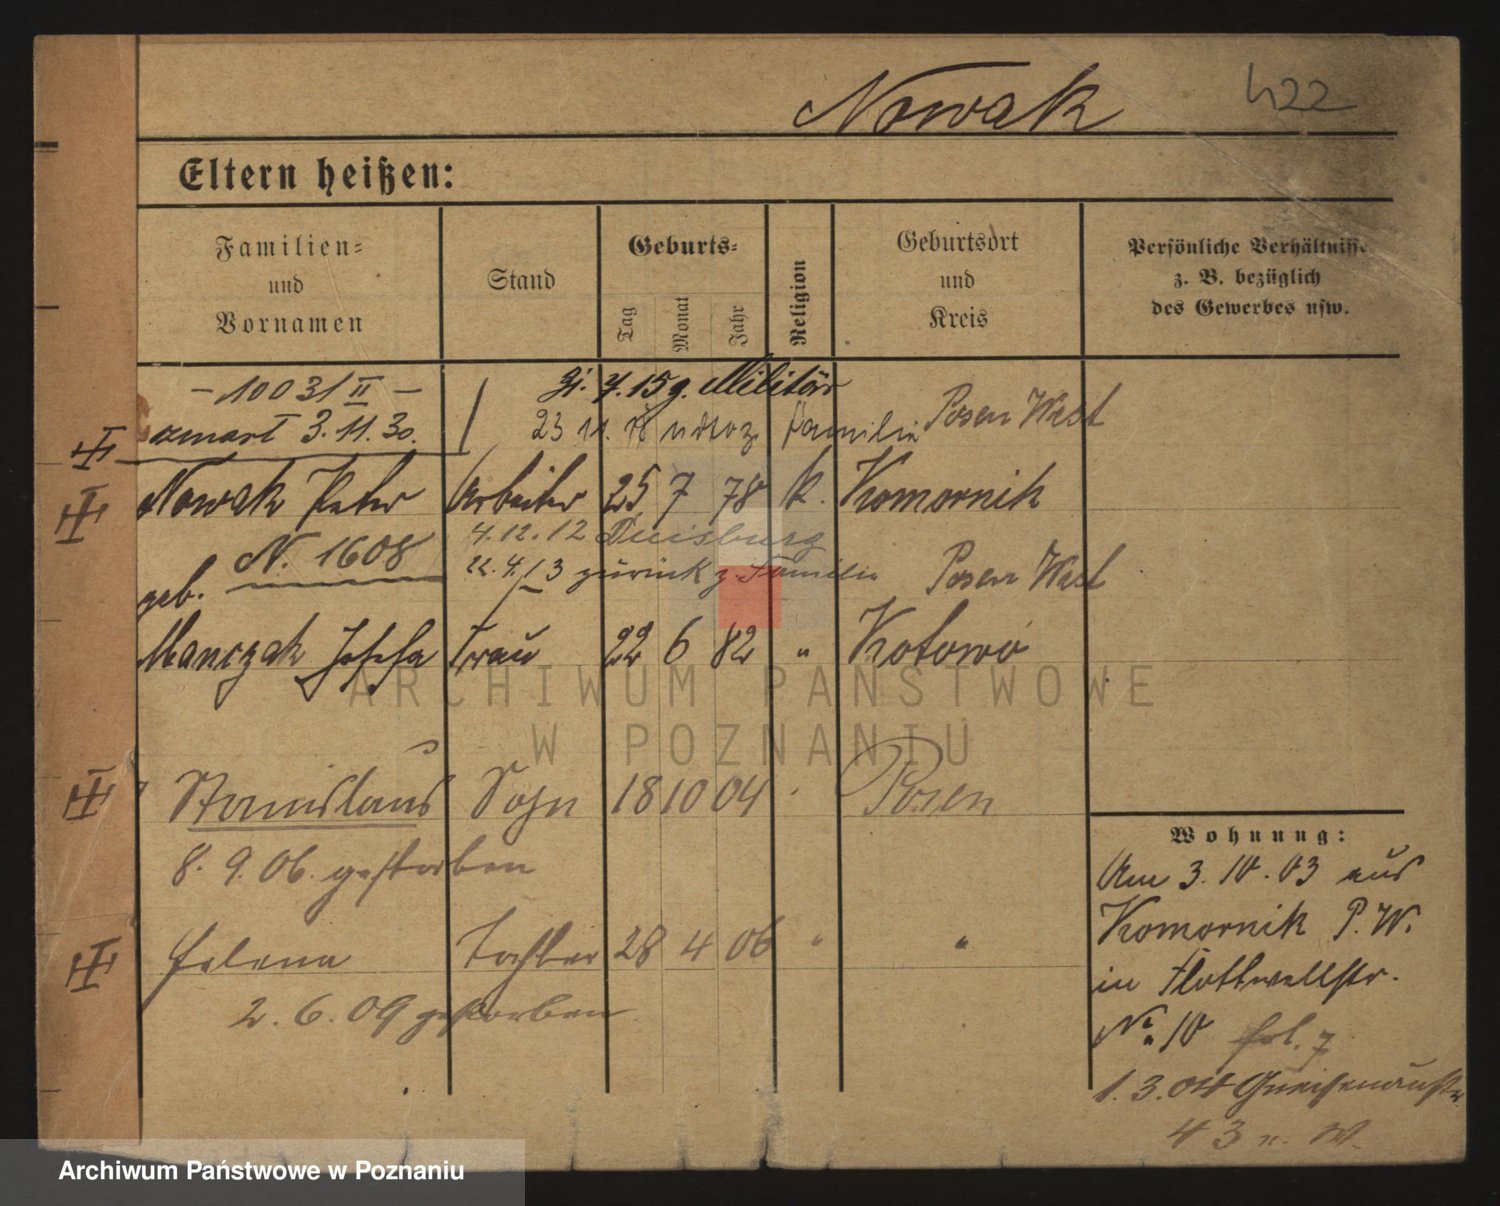 Nowak 422
Eltern heißen:
Familien=
und
Vornamen
Stand
Geburts=
Tag
Monat
Jahr
Religion
Geburtsort
und
Kreis
Persönliche Verhältnisse
z. B. bezüglich
des Gewerbes usw.
- 10031 II -
zmarł 3.11.30.
7.15 g. Militär
23 11. 18 z Familie
Posen West
Nowak Peter Arbeiter 25 7 78 k. Komornik
4.12.12 Duisburg
N. 1608
22.4.13 zurück z. Familie
Posen West
geb.
Manczak Josefa Frau 22 6 82 " Kotowo
Stanislaus Sohn 18 10 04 Posen
8. 9. 06. gestorben
Helena Tochter 28 4 06 " "
2. 6. 09 gestorben
Wohnung:
Am 3. 10. 03 aus
Komornik P. W.
in Flottwellstr.
No 10
1. 3. 04 Gneisenaustr
43
ARCHIWUM PAŃSTWOWE
W POZNANIU
Archiwum Państwowe w Poznaniu